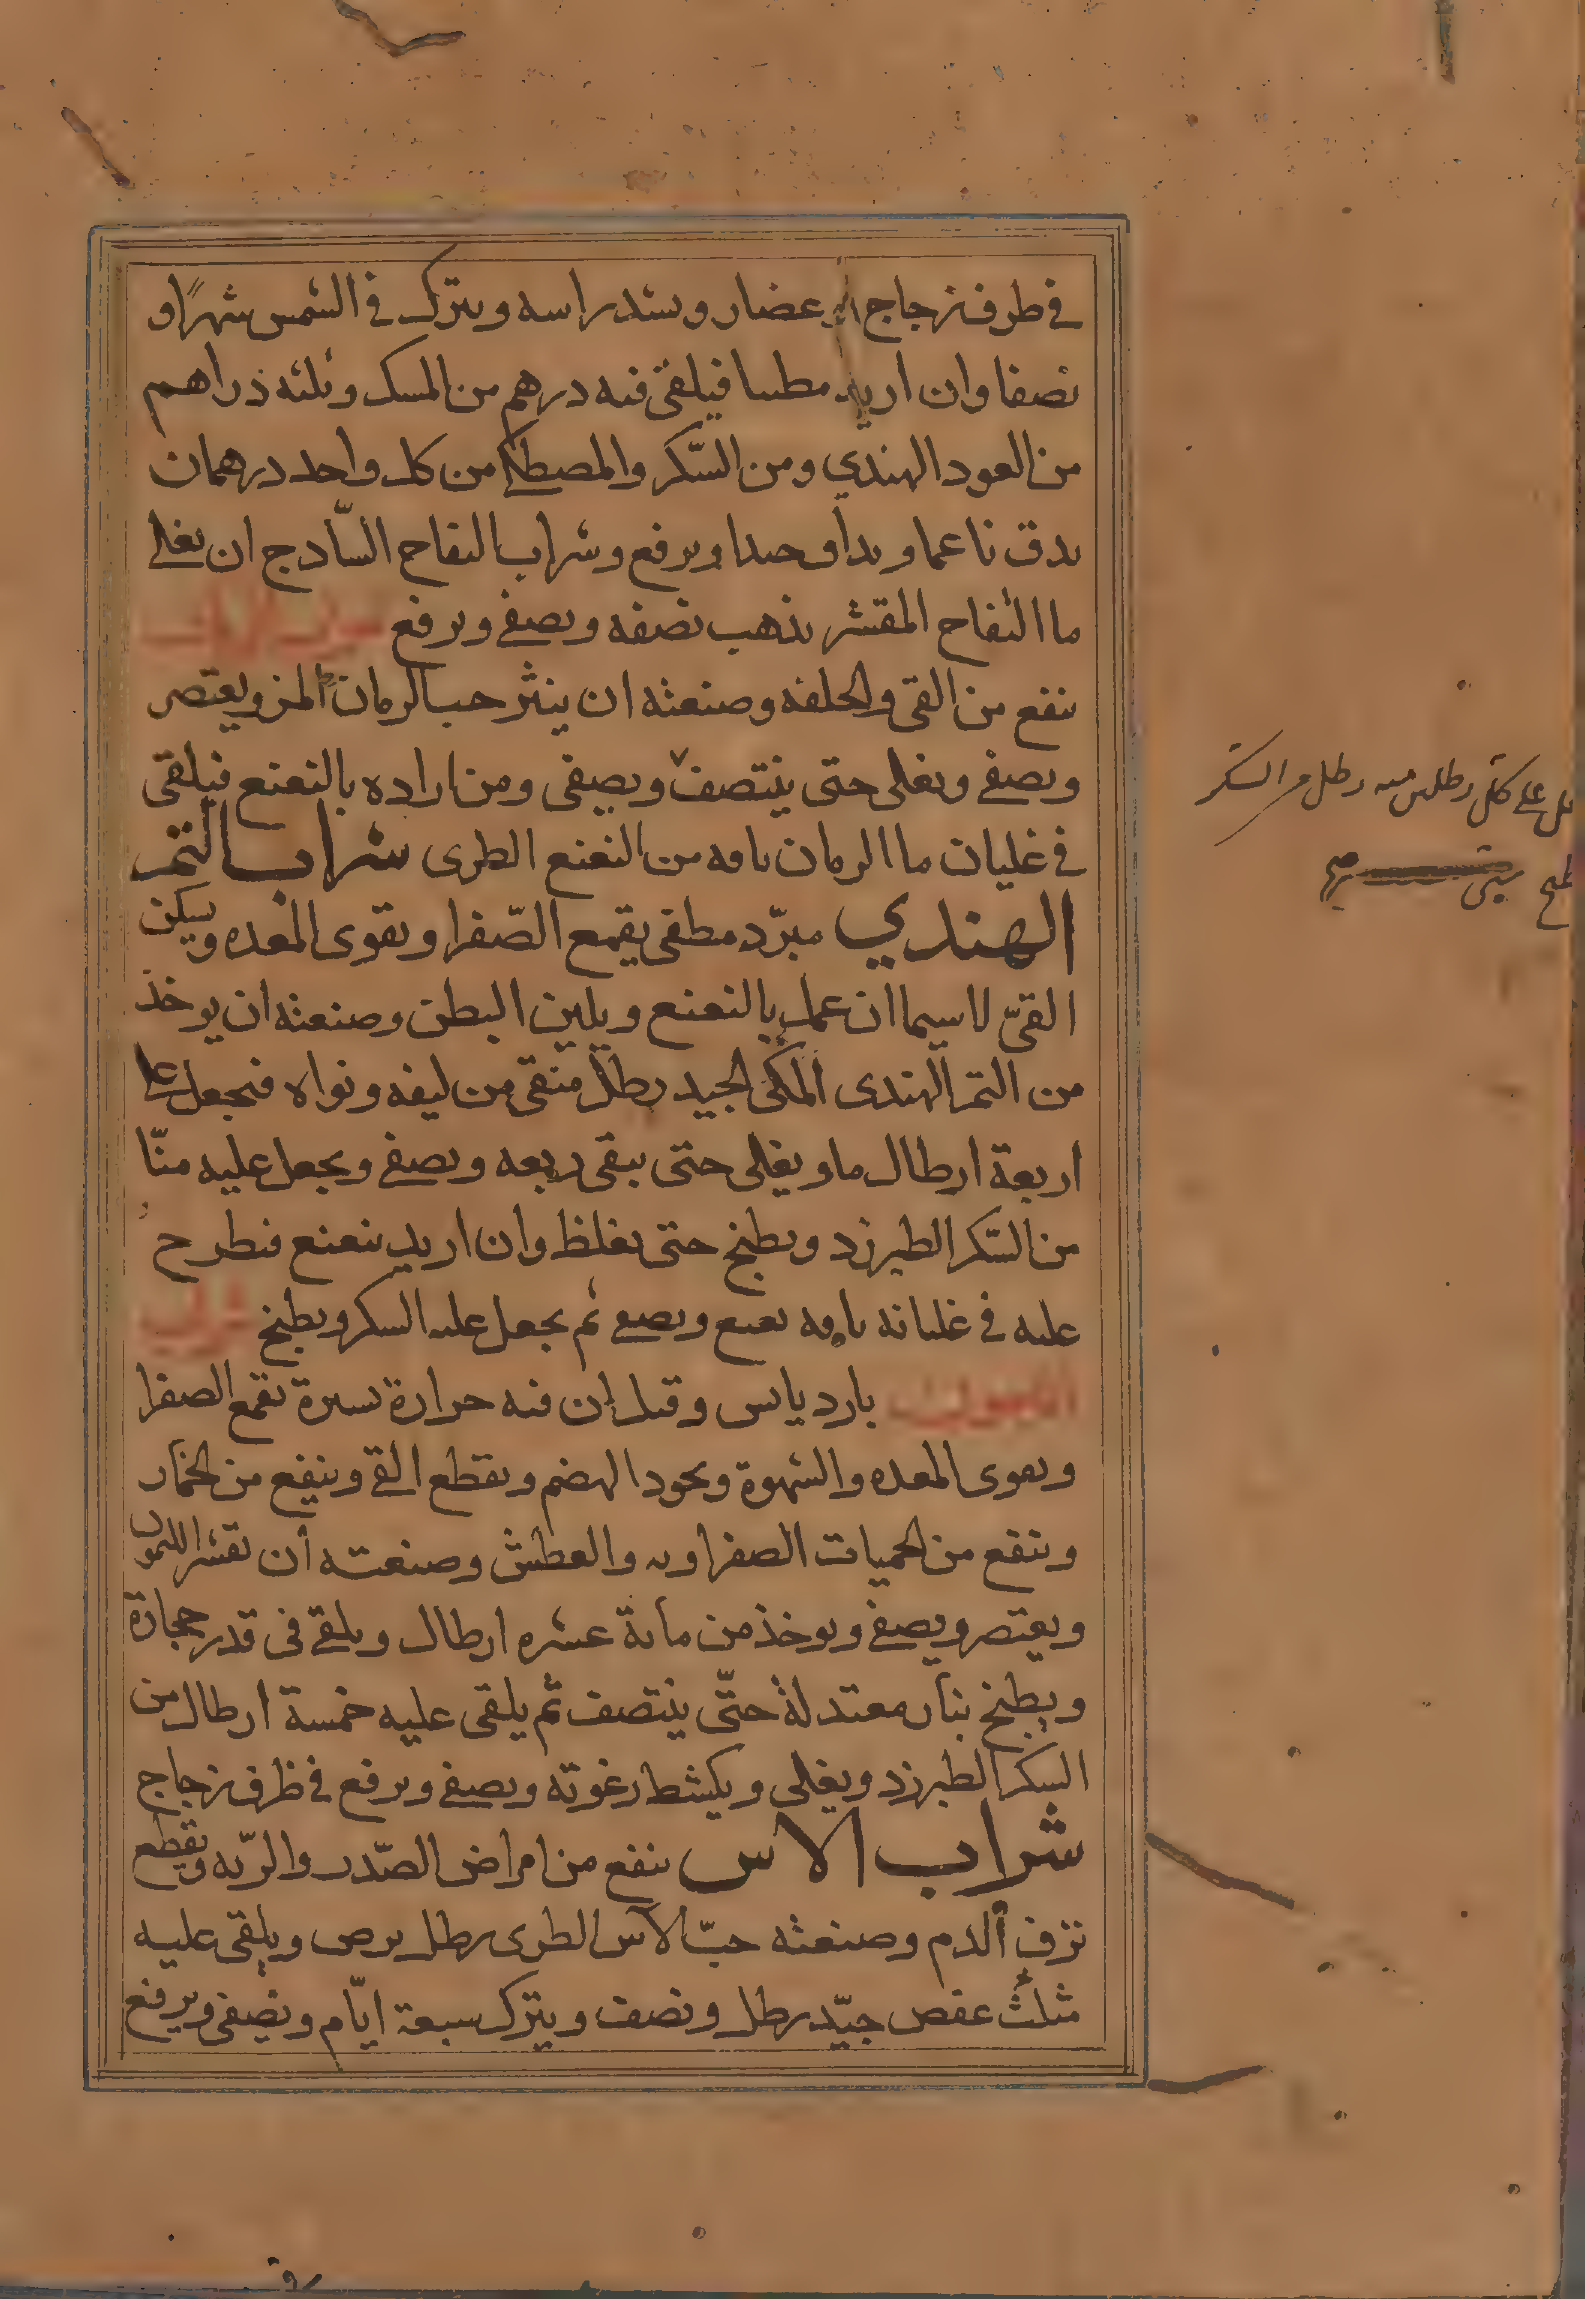 في ظرف زجاج او غضار ويشد راسه ويترك في الشمس شهرًا و
نصفا وان اريد مطيبا فيلقى فيه درهم من المسك وثلثه دراهم
من العود الهندي ومن السّكر والمصطكى من كل واحد درهمان
يدق ناعما ويداف جيدا ويرفع وشراب التفاح السّادج ان يغلى
ما التفاح المقشر يذهب نصفه ويصفى ويرفع شراب الرمان
ينفع من القي والخلفه وصنعته ان ينثر حب الرمان المز ويعتصر
ويصفى ويغلى حتى ينتصف ويصفى ومن اراده بالنعنع فيلقى
في غليان ما الرمان باقه من النعنع الطرى شراب التمر
الهندي مبرّد مطفى يقمع الصّفرا ويقوى المعده ويسكن
القيّ لاسيما ان عمل بالنعنع ويلين البطن وصنعته ان يوخذ
من التمر الهندى المكى الجيد رطل منقى من ليفه ونواه فيجعل على
اربعة ارطال ما ويغلى حتى يبقى ربعه ويصفى ويجعل عليه منّا
من السّكر الطبرزد ويطبخ حتى يغلظ وان اريد بنعنع فيطرح
عليه في غليانه باقه نعنع ويصفى ثم يجعل عليه السكر ويطبخ شراب
الليمون بارد يابس وقيل ان فيه حرارة يسيرة يقمع الصفرا
ويقوى المعده والشهوة ويجود الهضم ويقطع القي وينفع من الخمار
وينفع من الحميات الصفراويه والعطش وصنعته أن يقشر الليمون
ويعتصر ويصفى ويوخذ من مائه عشره ارطال ويلقى في قدر حجارة
ويطبخ بنار معتدلة حتّى ينتصف ثم يلقى عليه خمسة ارطال من
السكر الطبرزد ويغلى ويكشط رغوته ويصفى ويرفع في ظرف زجاج
شراب الاس ينفع من امراض الصّدر والريّه ويقطع
نزف ألدم وصنعته حبّ الآس الطرى رطل يرص ويلقى عليه
مثلث عفص جيّد رطل ونصف ويترك سبعة ايّام ويصفى ويرفع
على كل رطلين منه رطل من السكر